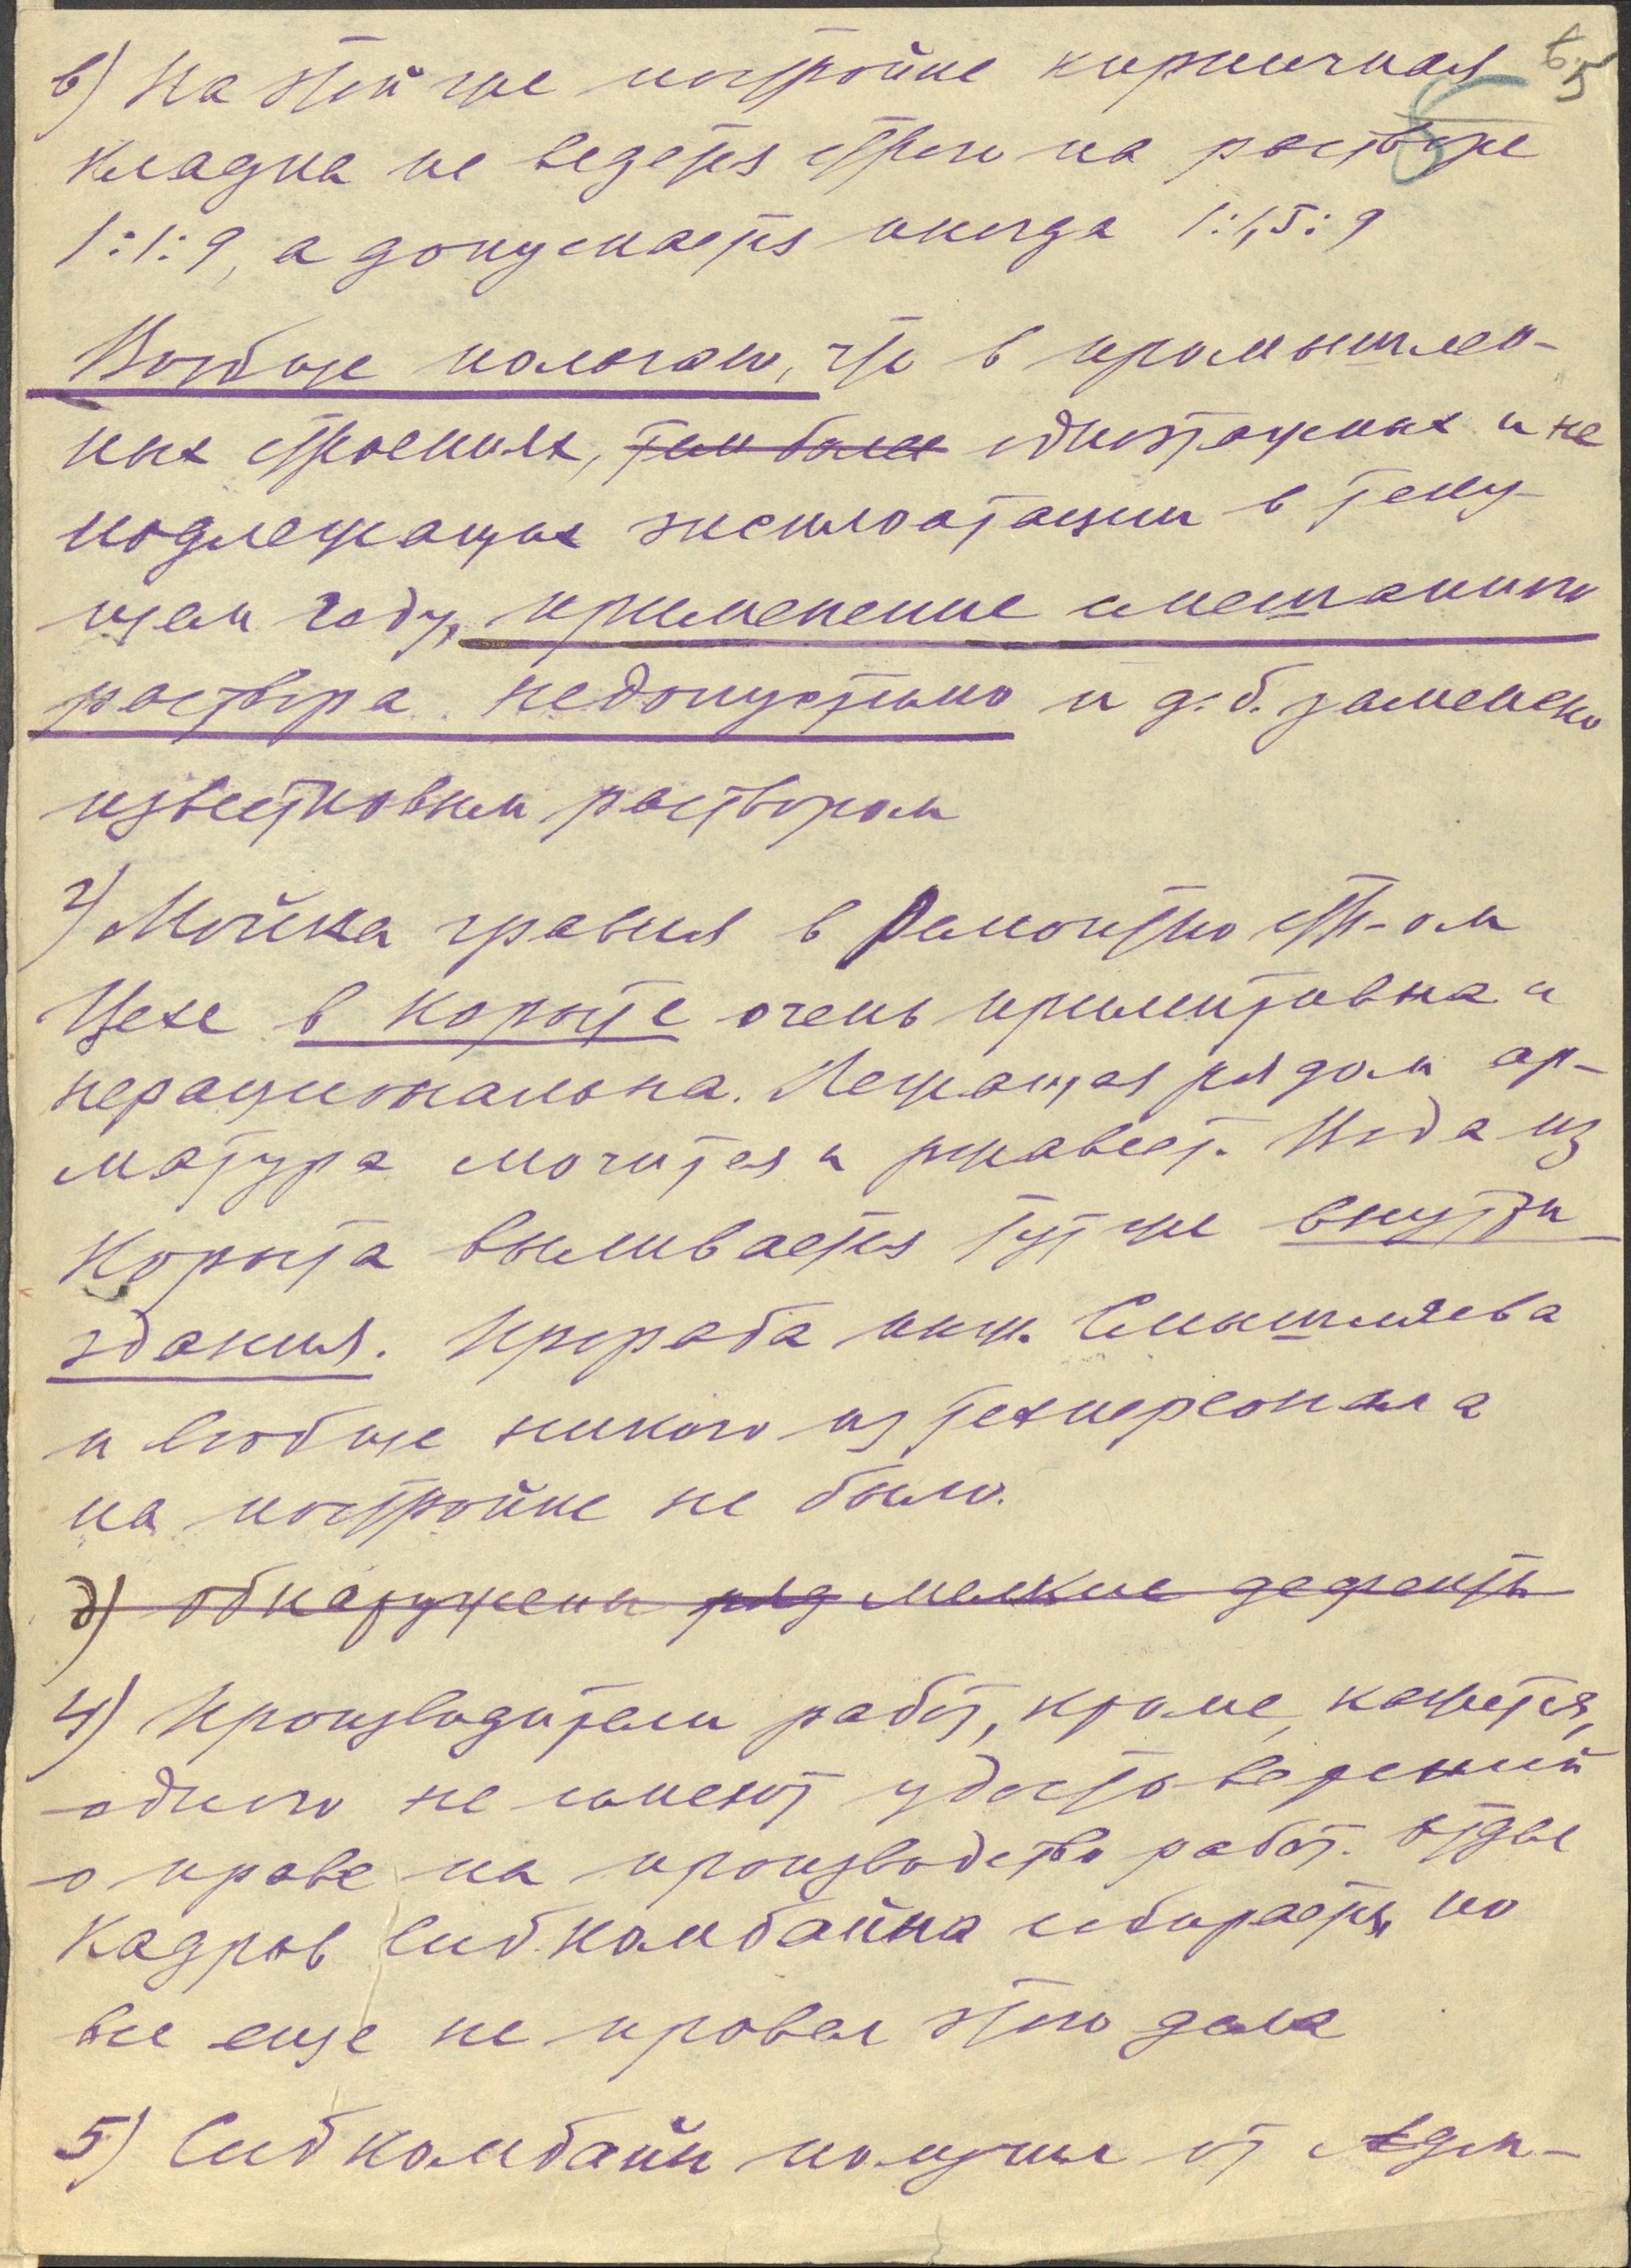 в) На этой же постройке кирпичная
кладка не ведется строго на растворе
1:1:9, а допускается иногда 1:1,5:9
Вообще полагаю, что в промышлен-
ных строениях, тем более одноэтажных и не
подлежащих эксплоатации в теку-
щем году, применение смешанного
раствора недопустимо и д.б. заменено
известковым раствором
г) Мойка гравия в Ремонтно стр-ом
Цехе в корыте очень примитивна и
нерациональна. Лежащая рядом ар-
матура мочится и ржавеет. Вода из
корыта выливается тут же внутри
здания. Прораба инж. Смышляева
и вообще никого из техперсонала
на постройке не было.
д) Обнаружены ряд мелкие дефекты
4) Производители работ, кроме, кажется,
одного не имеют удостоверений
о праве на производство работ. Отдел
Кадров Сибкомбайна собирается, но
все еще не провел этого дела
5) Сибкомбайн получил от